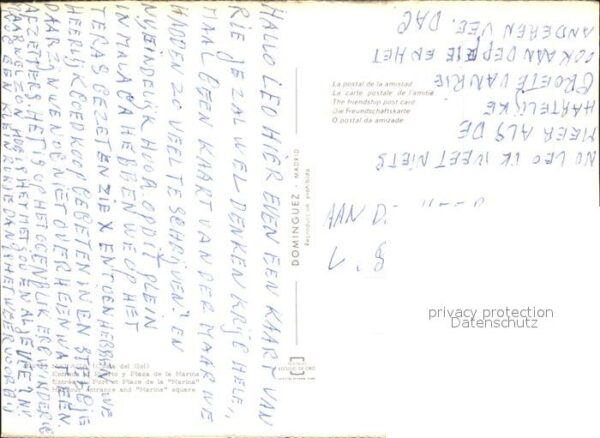 HALLO LEO HIER EEN EEN KAART VAN
RIE JE ZAL WEL DENKEN KRIJG HELE,,
MAAL GEEN KAART VAN DER MAAR WE
HADDEN ZO VEEL TE SCHRIJVEN? EN
NU EINDELIJK HOOR. OP DIT PLEIN
IN MALAGA HEBBEN WE OP HET
TERAS GEZETEN ZIE X EN TOEN HEBBEN WE
HEERLIJK GOEDKOOP GEGETEN IN EN STEEGJE
DAAR ZIJN WE NOG NIET OVERHEEN WAT EEN
AFZETTERS HET IS OP HET OGENBLIK ERG WINDERIG
MAAR WEL ZON
NOG EEN KLEIN ROKJE DAN IS HET WEER VOORBIJ
NU LEO IK WEET NIETS
MEER ALS DE
HARTELIJKE
GROETE VAN RIE
OOK AAN DEPPIE EN HET
ANDEREN VEE. DAG
AAN
La postal de la amistad
La carte postale de l'amitié
The friendship post card
Die Freundschaftskarte
O postal da amizade
DOMINGUEZ - MADRID
Reproducción prohibida
(Costa del Sol)
Entrada al Puerto y Plaza de la Marina
Entrée au Port et Place de la "Marina"
Harbour entrance and "Marina" square
privacy protection
Datenschutz